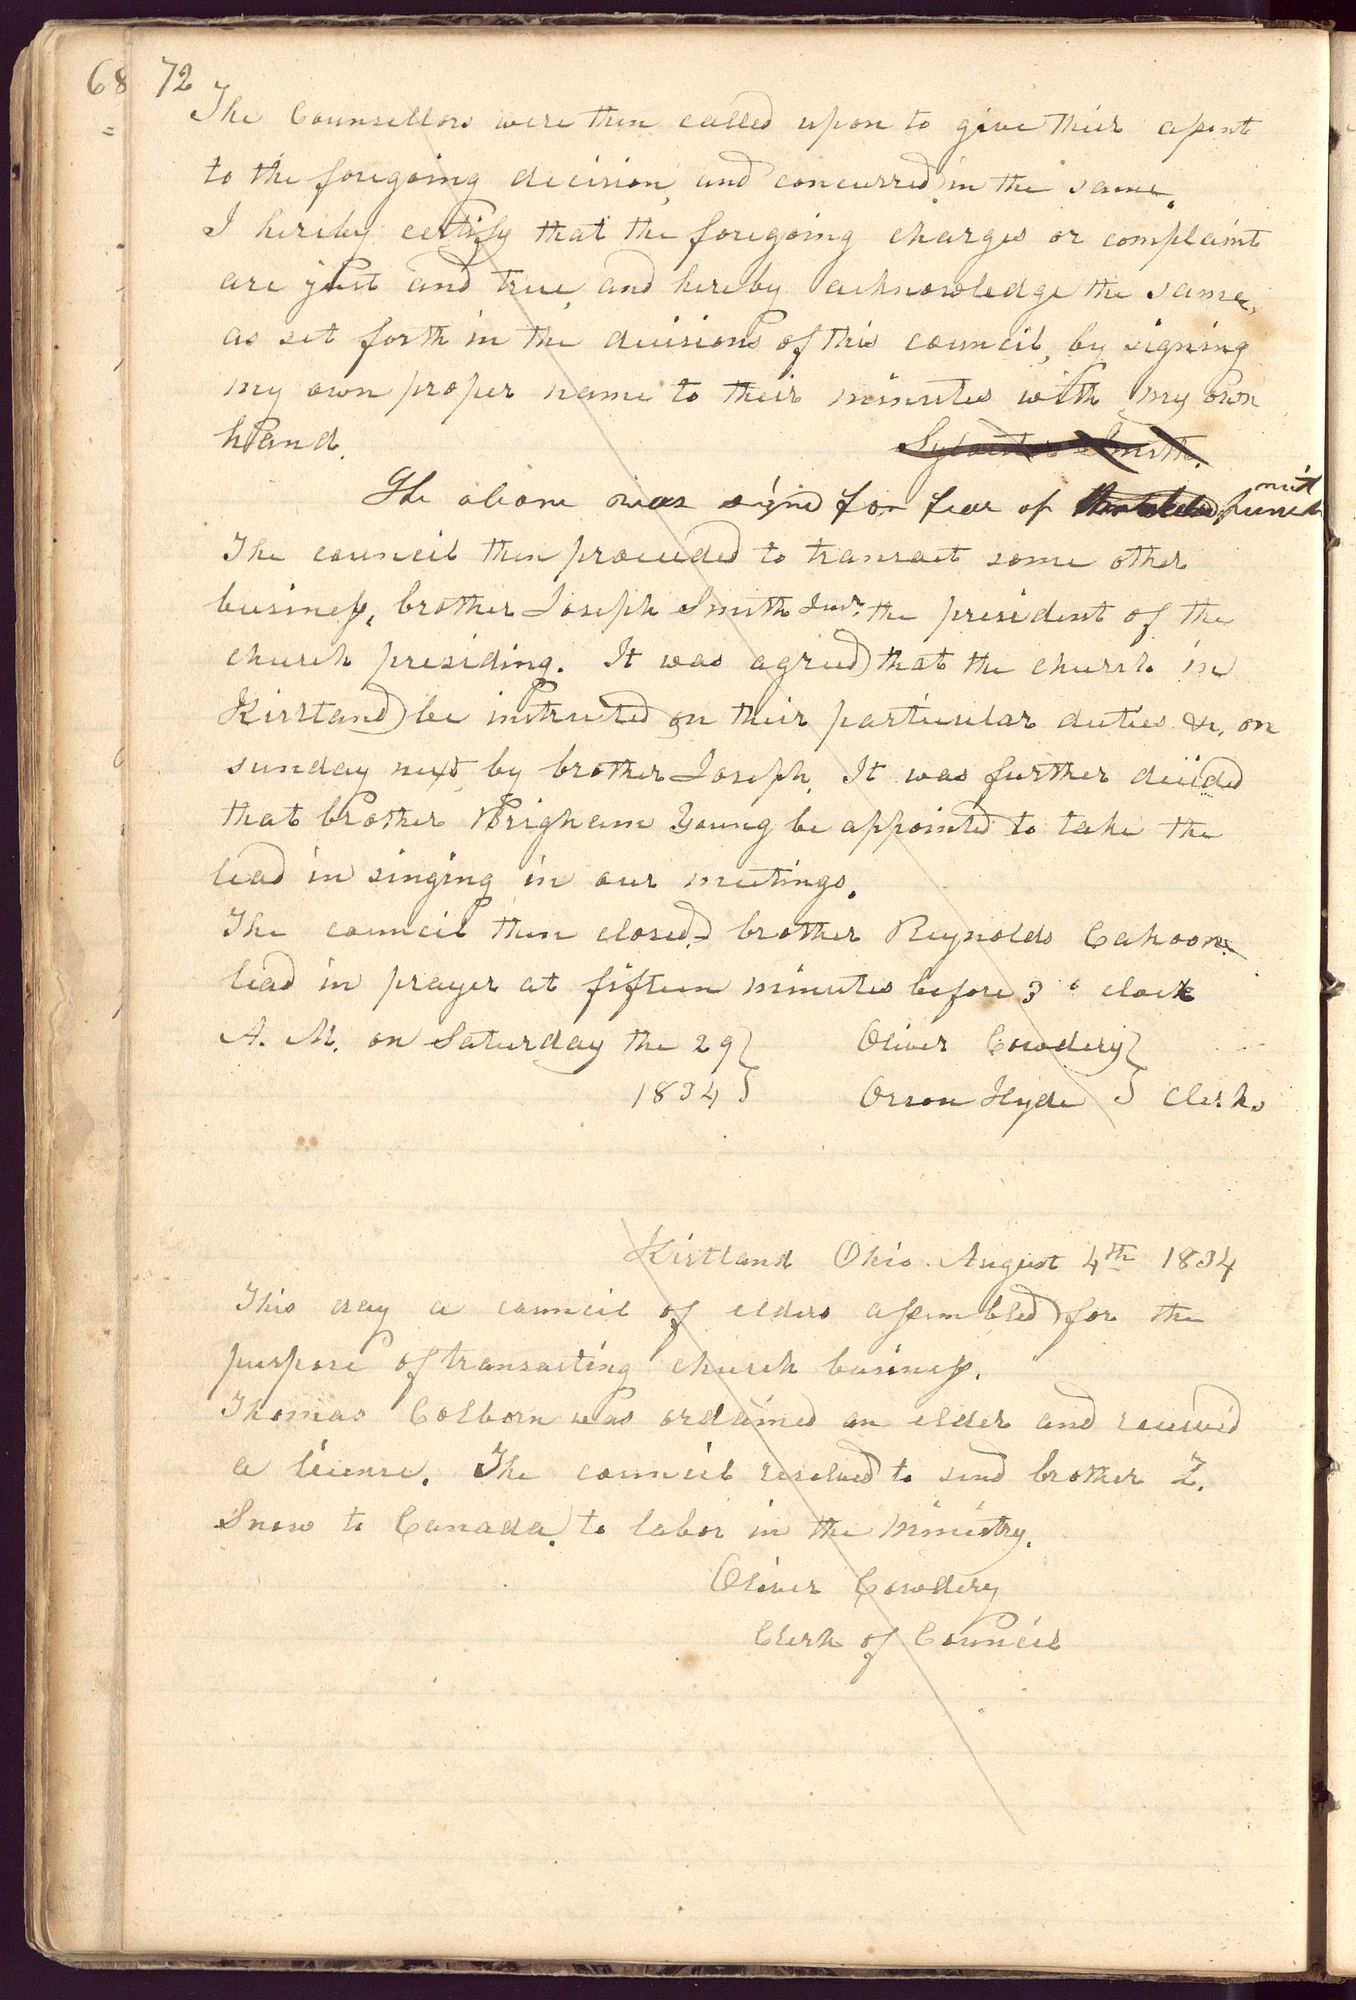 68 72
The Counsellors were then called upon to give their assent
to the foregoing decision, and concurred in the same.
I hereby certify that the foregoing charges or complaint
are just and true, and hereby acknowledge the same,
as set forth in the decisions of this council, by signing
my own proper name to their minutes with my own
hand. Sylvester Smith.
The above was signed for fear of punishment
The council then proceeded to transact some other
business, brother Joseph Smith Junr. the president of the
church presiding. It was agreed that the church in
Kirtland be instructed on their particular duties &c, on
sunday next, by brother Joseph. It was further decided
that brother Brigham Young be appointed to take the
lead in singing in our meetings.
The council then closed, brother Reynolds Cahoon
lead in prayer at fifteen minutes before 3 o clock
A. M. on Saturday the 29 } Oliver Cowdery }
1834 } Orson Hyde } Clerks
Kirtland Ohio. August 4th 1834
This day a council of elders assembled for the
purpose of transacting church business.
Thomas Colborn was ordained an elder and received
a license. The council resolved to send brother Z.
Snow to Canada, to labor in the ministry.
Oliver Cowdery
Clerk of Council